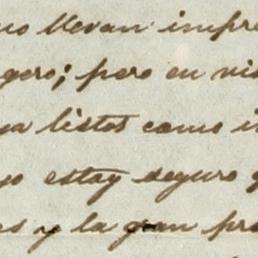 no llevan impre
gero; pero en vis
ya listos como i
yo estoy seguro q
es y la gran pro